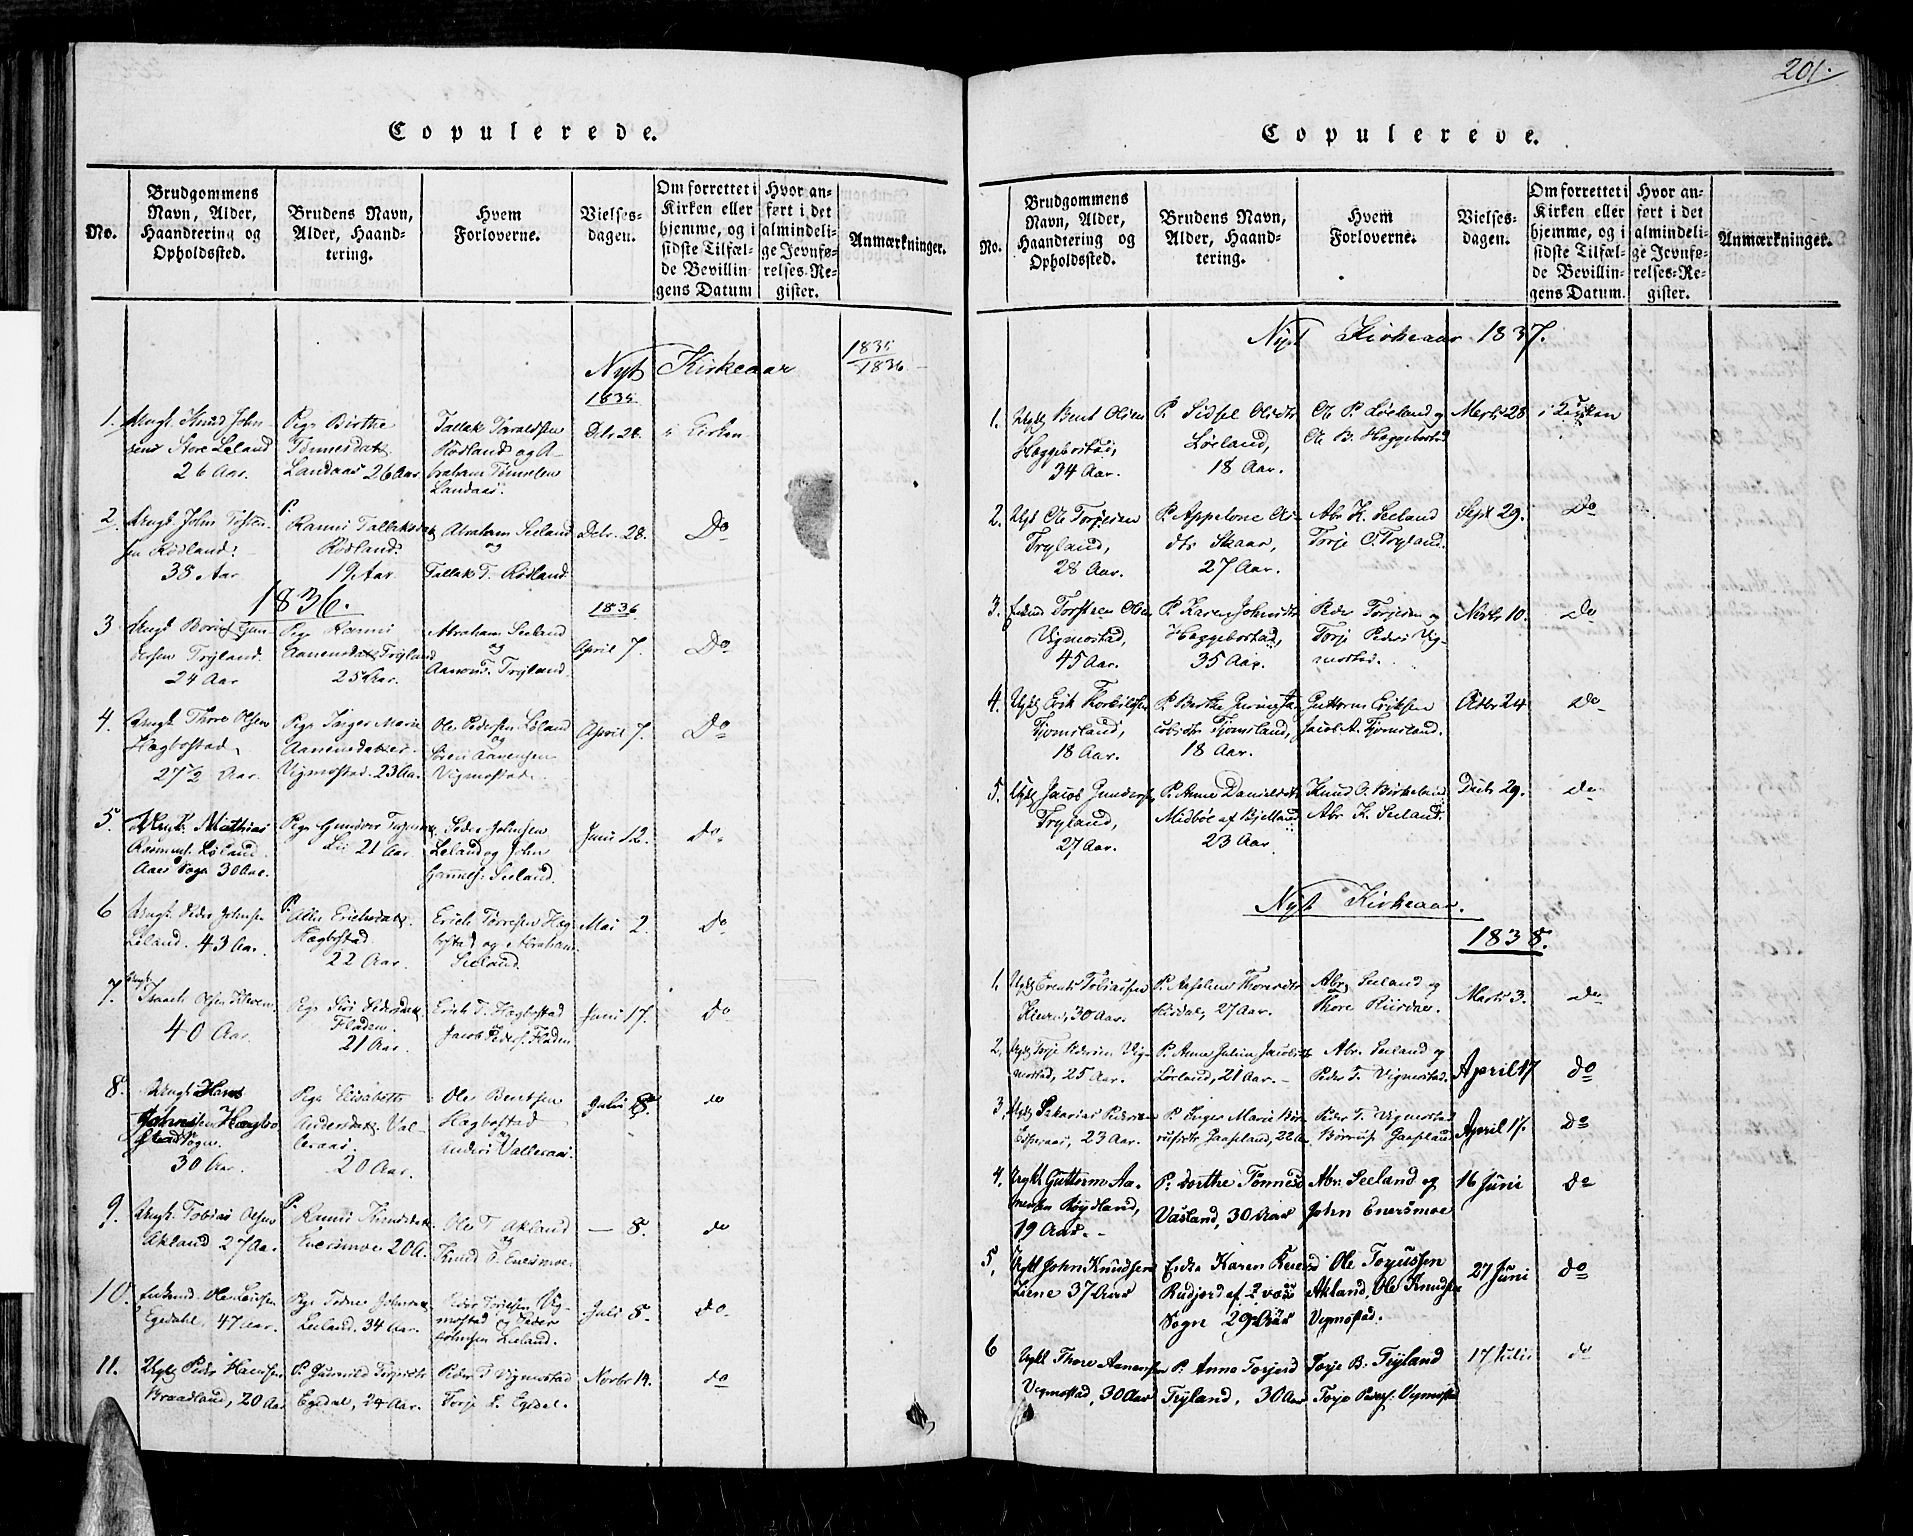 201.
Copulerede.
No.
Brudgommens Navn, Alder, Haandtering og Opholdssted.
Brudens Navn, Alder, Haandtering.
Hvem Forloverne.
Vielsesdagen.
Om forrettet i Kirken eller hjemme, og i sidste Tilfælde Bevillingens Datum
Hvor anført i det almindelige Jevnførelses-Register.
Anmærkninger.
Nyt Kirkeaar 1835/1836
1835
1. Ungk. Knud Johnsens Store Leland 26 Aar. Pige Birthe Tønnesdatter Landaas 26 Aar. Tallak Tøraldsen Rødland og Abraham Tønnesen Landaas. Dcbr. 28. i Kirken
2. Ungk. John Tostensen Rødland. 35 Aar. P. Ranni Tallaksdatter Rødland. 19 Aar. Abraham Seeland og Tallak T. Rødland. Dcbr. 28. Do
1836. 1836
3 Ungk. Gundersen Tryland. 24 Aar Pige Ranni Aanensdatter Tryland 25 Aar. Abraham Seeland og Tryland. April 7. Do
4. Ungk. Thore Olsen Hægbostad, 27½ Aar. Pige Inger Marie Aanensdatter Vigmostad. 23 Aar. Ole Pedersen Løland og Søren Aanensen Vigmostad. April 7. Do
5. Ungk. Mathias Rasmus. Løland. Aaes Sogn 30 Aar. Pige Gundvor Lii 21 Aar. Peder Johnsen Leland og John Seeland. Juni 12. Do.
6 Ungk. Peder Johnsen Leland. 43 Aar. P. Erichsdatter Hægbostad 22 Aar. Erich Tørresen Hægbostad og Abraham Seeland. Mai 2. Do
7. Ungk. Isaach Olsen 40 Aar. Pige Siri Pedersdatter Fladen. 21 Aar. Erich T. Hægbostad Jacob Peders. Fladen Juni 17. do
8. Ungk. Hans Johnsen Hægbostad Sogn. 30 Aar. Pige Elisabeth Andersdatter Valleraas 20 Aar. Ole Bentsen Hægbostad Anders Valleraas. Juli 8. do
9. Ungk. Tobias Olsen Akland 27 Aar. P. Ranni Knudsdatter Enersmoe 20 A. Ole T. Akland og Knud T. Enersmoe. — 8. do
10. Enkemd. Ole Larsen Egedahl, 47 Aar. Pige Johnsdatter Leeland, 34 Aar. Peder Vigmostad og Peder Johnsen Leeland. Juli 8. do.
11. Ugk. Peder Hansen Braadland, 20 Aar P. Gunvild Torjesdtr Egedal, 24 Aar. Peder T Vigmostad Torje L. Egedal. Novbr 14. do
Copulerede.
No.
Brudgommens Navn, Alder, Haandtering og Opholdssted.
Brudens Navn, Alder, Haandtering.
Hvem Forloverne.
Vielsesdagen.
Om forrettet i Kirken eller hjemme, og i sidste Tilfælde Bevillingens Datum.
Hvor anført i det almindelige Jevnførelses-Register.
Anmærkninger.
Nyt Kirkeaar 1837.
1. Ugk Bent Olsen Heggebostad, 34 Aar. P. Sidsel Olsdtr Løeland, 18 Aar. Ole P. Løeland og Ole B. Heggebostad Marts 28. i Kirken
2. Ugk Ole Torjesen Tryland, 28 Aar. P. Appelone Olsdtr Skaar, 27 Aar. Abr. K. Seeland Torje O. Tryland. Sept 29. Do
3. Enkmd Torsten Olsen Vigmostad, 45 Aar. P. Karen Johnsdtr Heggebostad, 35 Aar. Peder Torjesen og Torje Peders. Vigmostad. Novbr 10. do
4. Ugk Erik Torkildsen Tjomsland, 18 Aar. P. Berthe Jacobsdtr Tjomsland, 18 Aar. Guttorm Eriksen Jacob A. Tjomsland. Octbr 24 do
5. Ugk Jacob Gunders. Tryland, 27 Aar. P. Anne Danielsdtr Midbøe af Bjelland 23 Aar. Knud O. Birkeland Abr K. Seeland. Decbr 29. do
Nyt Kirkeaar.
1838.
1. Ugk Tobiassen 30 Aar. P. Thoresdtr 27 Aar. Abr. Seeland og Thore Marts 3. do
2. Ugk Torje Pedersen Vigmostad, 25 Aar. P. Anne Jacobsdtr Løeland, 21 Aar. Abr. Seeland og Peder T. Vigmostad. April 17 do
3. Ugk Sakarias Pedersen 23 Aar. P. Inger Marie Gaaseland, 22 A Peder T. Vigmostad Gaaseland April 17. Do
4. Ugkl Guttorm Aanensen Røydland, 19 Aar. P. Dorthe Tønnesd Vasland, 30 Aar Abr. Seeland og John Enersmoe 16 Juni do
5. Ugkl John Knudsen Liene 37 Aar Enke Karen Rudjord af Sogn 29 Aar Ole Torjussen Akland, Ole Knudsen Vigmostad. 27 Juni do
6 Ugkl Thore Aanensen Vigmostad, 30 Aar P. Anne Torjesd Tryland, 30 Aar Torje B. Tryland Torje Peders. Vigmostad 17 Julii do